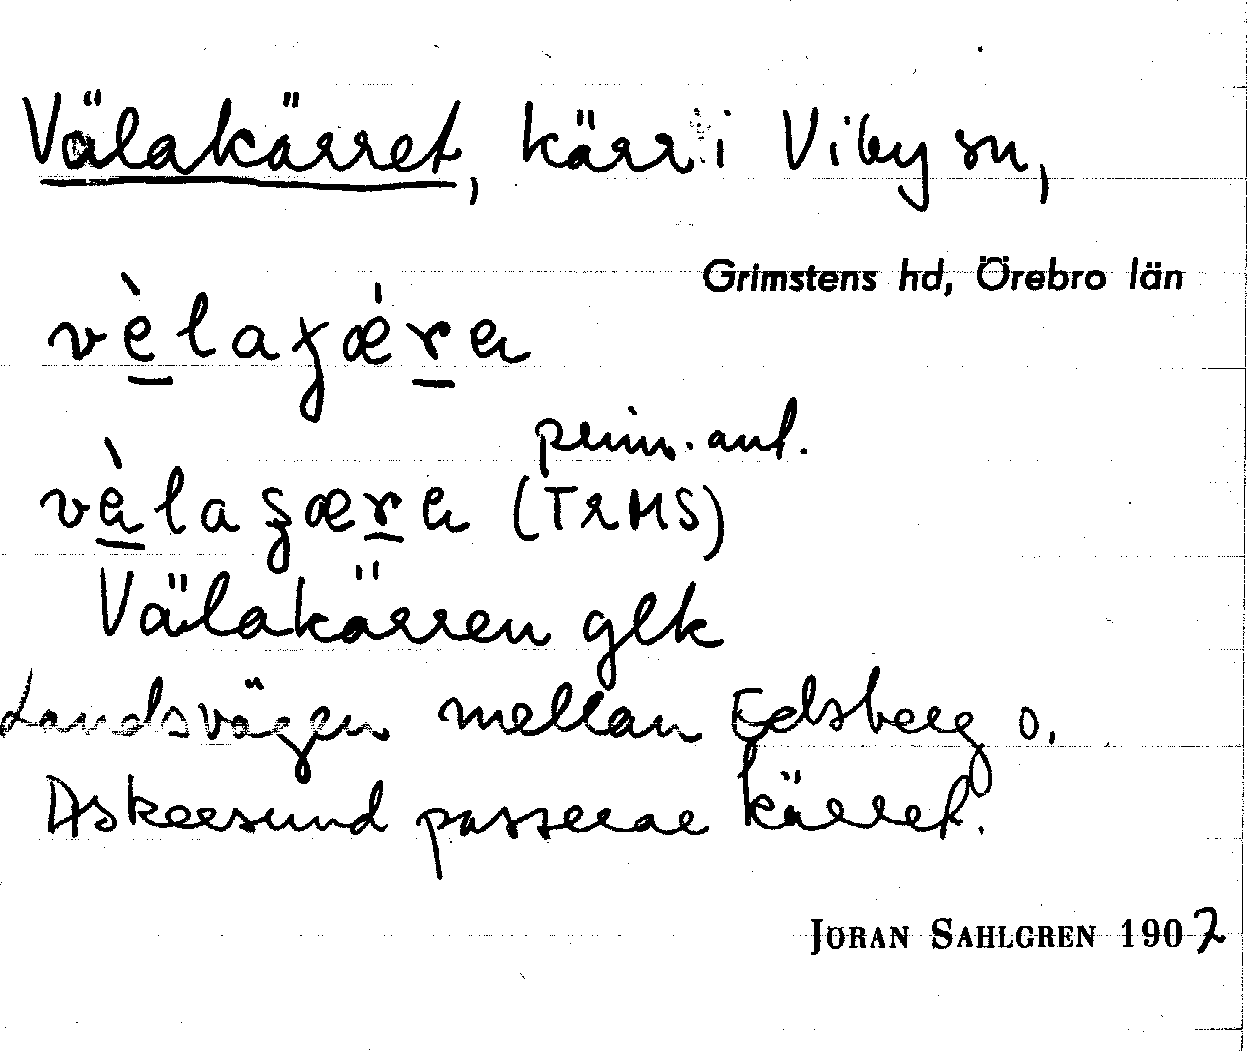 Välakärret, kärr i Viby sn,
Grimstens hd, Örebro län
vè̱laʓǽṟa
prim. ant.
vὰ̱laʓæṟa (TRMS)
Välakärren glk
Landsvägen mellan Edsberg o.
Askersund passerar kärret.
JÖRAN SAHLGREN 1907